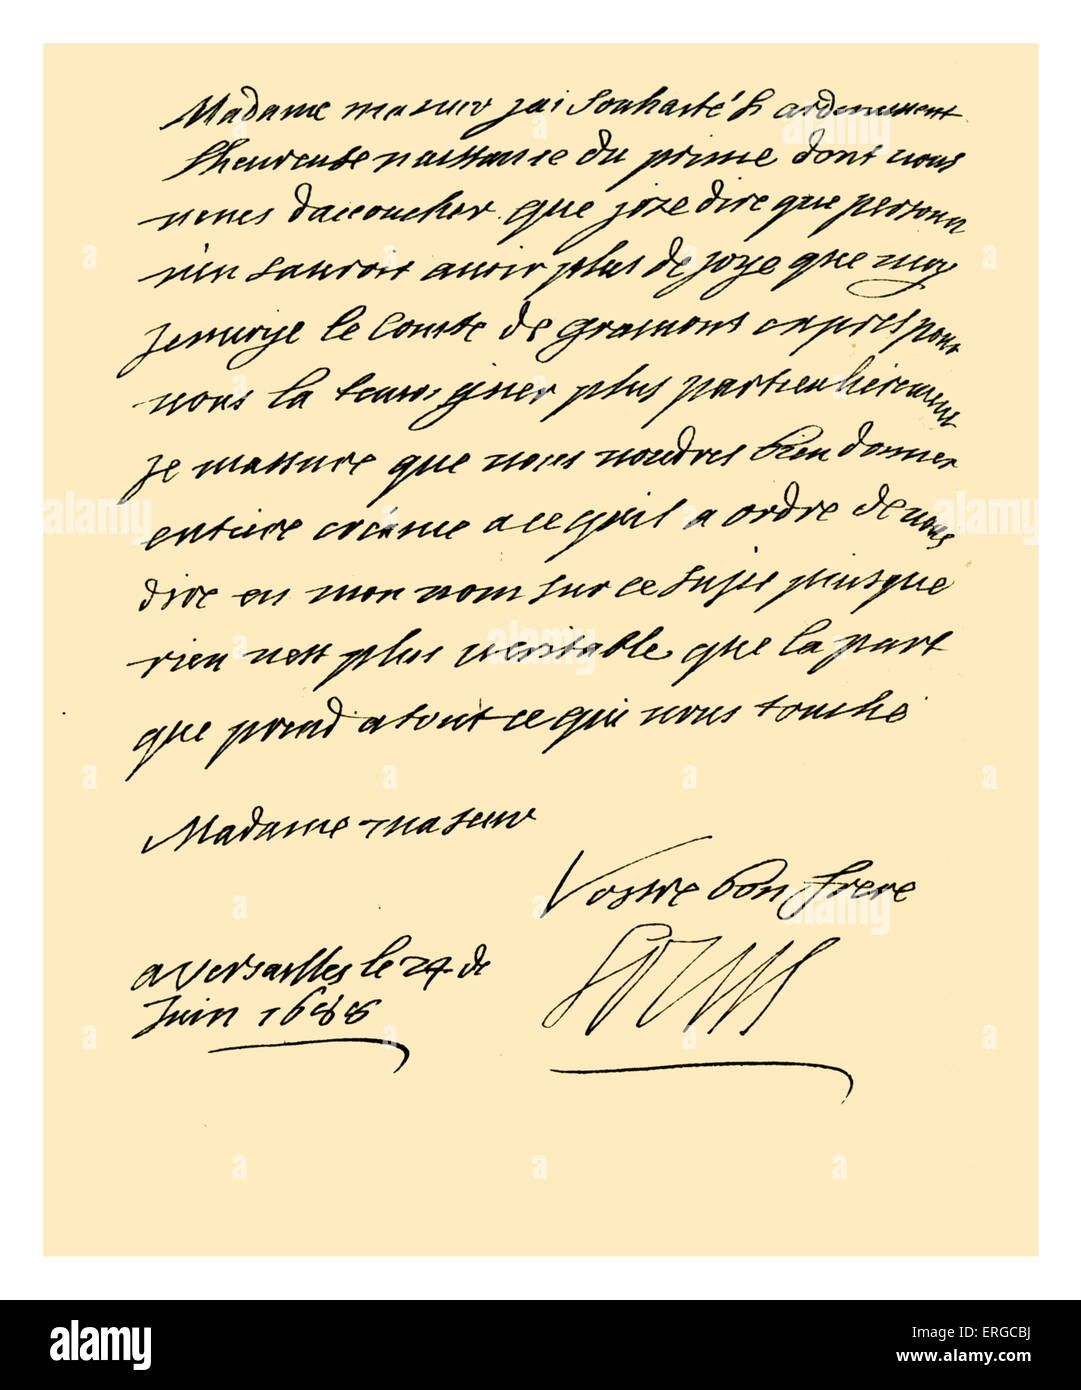 Madame ma seur jai souhaité si ardemment
lheureuse naissance du prince dont vous
venes daccoucher que jose dire que personne
nen sauroit avoir plus de joye que moy
jenvoye le Comte de gramont expres pour
vous la tesmoigner plus particulierement
je massure que vous voudres bien donner
entiere creance a ce quil a ordre de vous
dire en mon nom sur ce sujet puisque
rien nest plus veritable que la part
que prend a tout ce qui vous touche
Madame ma seur
Vostre bon frere
Louis
a Versailles le 24 de
Juin 1688
alamy
Image ID: ERGCBJ
www.alamy.com